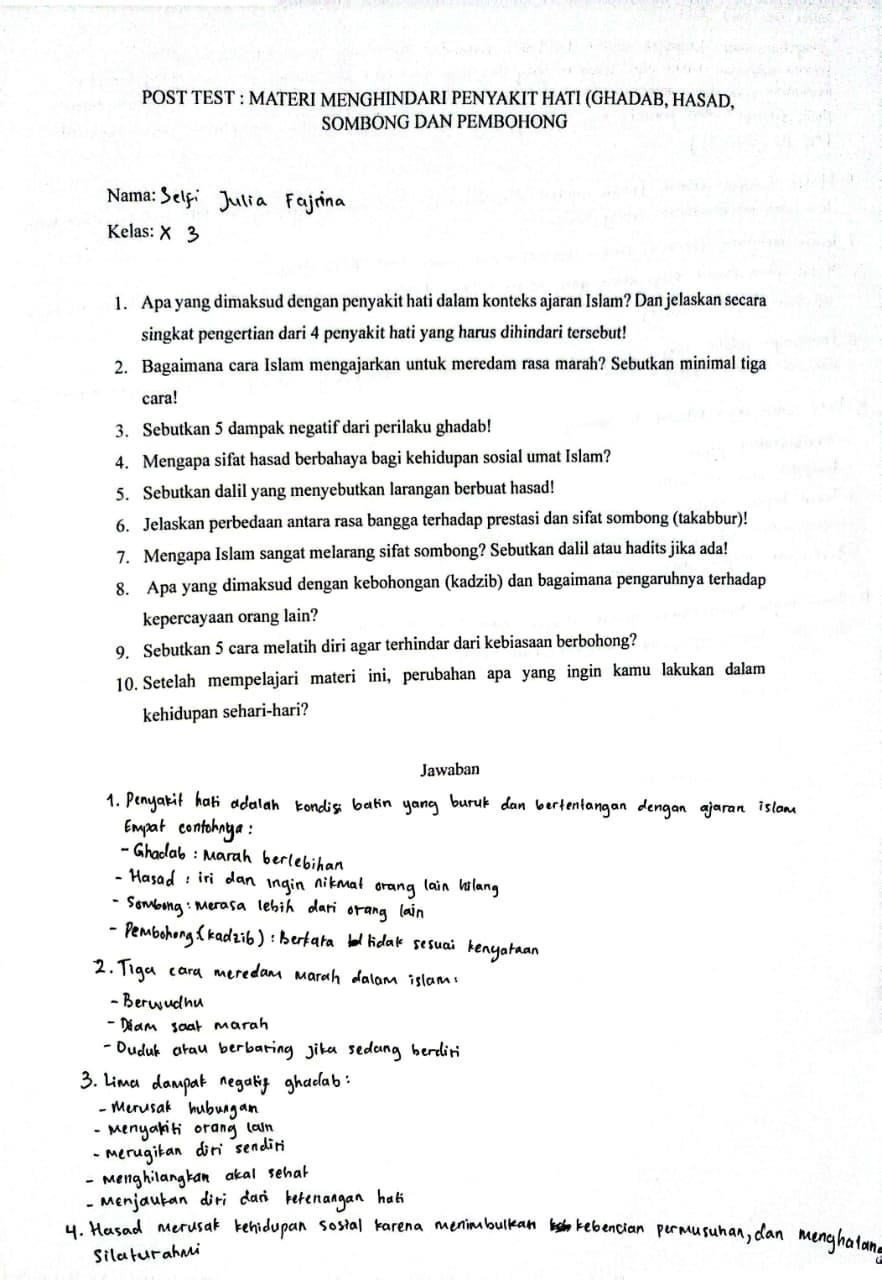 POST TEST : MATERI MENGHINDARI PENYAKIT HATI (GHADAB, HASAD,
SOMBONG DAN PEMBOHONG
Nama: Selfi Julia Fajrina
Kelas: X 3
1. Apa yang dimaksud dengan penyakit hati dalam konteks ajaran Islam? Dan jelaskan secara
singkat pengertian dari 4 penyakit hati yang harus dihindari tersebut!
2. Bagaimana cara Islam mengajarkan untuk meredam rasa marah? Sebutkan minimal tiga
cara!
3. Sebutkan 5 dampak negatif dari perilaku ghadab!
4. Mengapa sifat hasad berbahaya bagi kehidupan sosial umat Islam?
5. Sebutkan dalil yang menyebutkan larangan berbuat hasad!
6. Jelaskan perbedaan antara rasa bangga terhadap prestasi dan sifat sombong (takabbur)!
7. Mengapa Islam sangat melarang sifat sombong? Sebutkan dalil atau hadits jika ada!
8. Apa yang dimaksud dengan kebohongan (kadzib) dan bagaimana pengaruhnya terhadap
kepercayaan orang lain?
9. Sebutkan 5 cara melatih diri agar terhindar dari kebiasaan berbohong?
10. Setelah mempelajari materi ini, perubahan apa yang ingin kamu lakukan dalam
kehidupan sehari-hari?
Jawaban
1. Penyakit hati adalah kondisi batin yang buruk dan bertentangan dengan ajaran islam
Empat contohnya :
- Ghadab : Marah berlebihan
- Hasad : iri dan ingin nikmat orang lain hilang
- Sombong : Merasa lebih dari orang lain
- Pembohong (kadzib) : Berkata tidak sesuai kenyataan
2. Tiga cara meredam marah dalam islam:
- Berwudhu
- Diam saat marah
- Duduk atau berbaring jika sedang berdiri
3. Lima dampak negatif ghadab :
- Merusak hubungan
- Menyakiti orang lain
- Merugikan diri sendiri
- Menghilangkan akal sehat
- Menjaukan diri dari ketenangan hati
4. Hasad merusak kehidupan sosial karena menimbulkan kebencian permusuhan, dan menghalang
silaturahmi